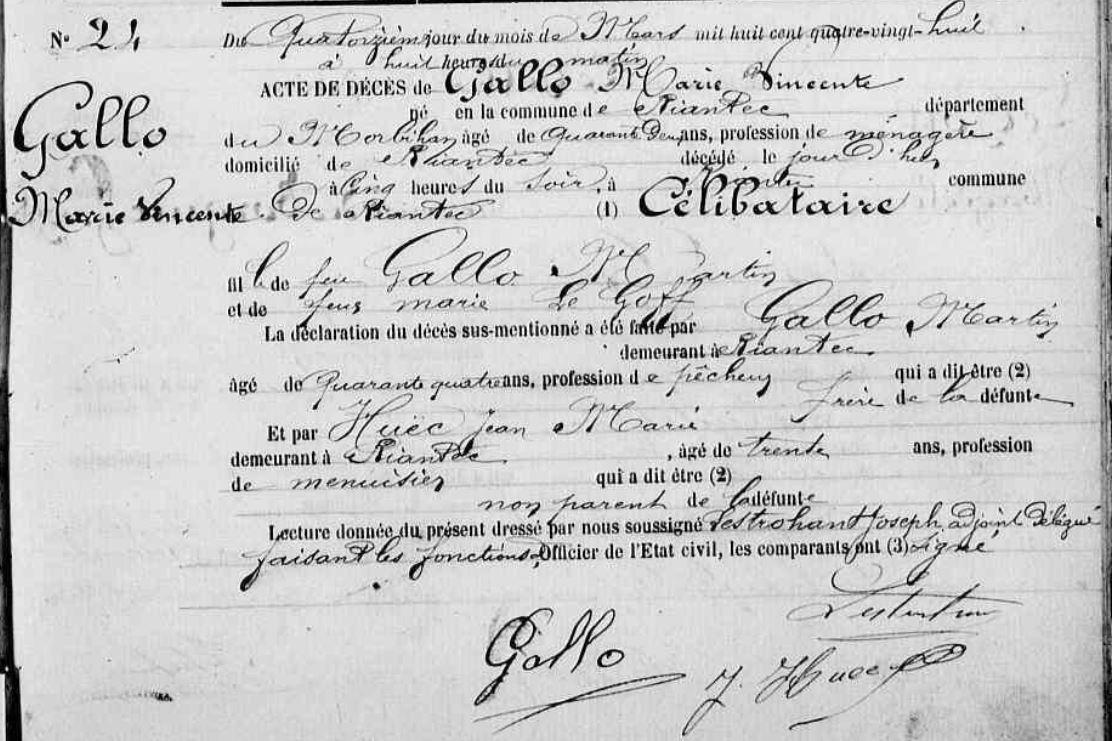 N° 24 Du Quatorzième jour du mois de Mars mil huit cent quatre-vingt-huit
à huit heures du matin
ACTE DE DÉCÈS de Gallo Marie Vincente
né en la commune de Riantec département
Gallo
du Morbihan, âgé de quarante deux ans, profession de ménagère
domicilié de Riantec décédé le jour d'hier
à Cinq heures du Soir, à commune
Marie Vincente de Riantec (1) Célibataire
fille de feu Gallo Martin
et de feue marie Le Goff
La déclaration du décès sus-mentionné a été faite par Gallo Martin
demeurant à Riantec
âgé de quarante quatre ans, profession de pêcheur qui a dit être (2)
frère de la défunte
Et par Huëc Jean Marie
demeurant à Riantec, âgé de trente ans, profession
de menuisier qui a dit être (2)
non parent de la défunte
Lecture donnée du présent dressé par nous soussigné Lestrohan Joseph, adjoint délégué
faisant les fonctions d'Officier de l'Etat civil, les comparants ont (3) signé
Gallo J. Huec